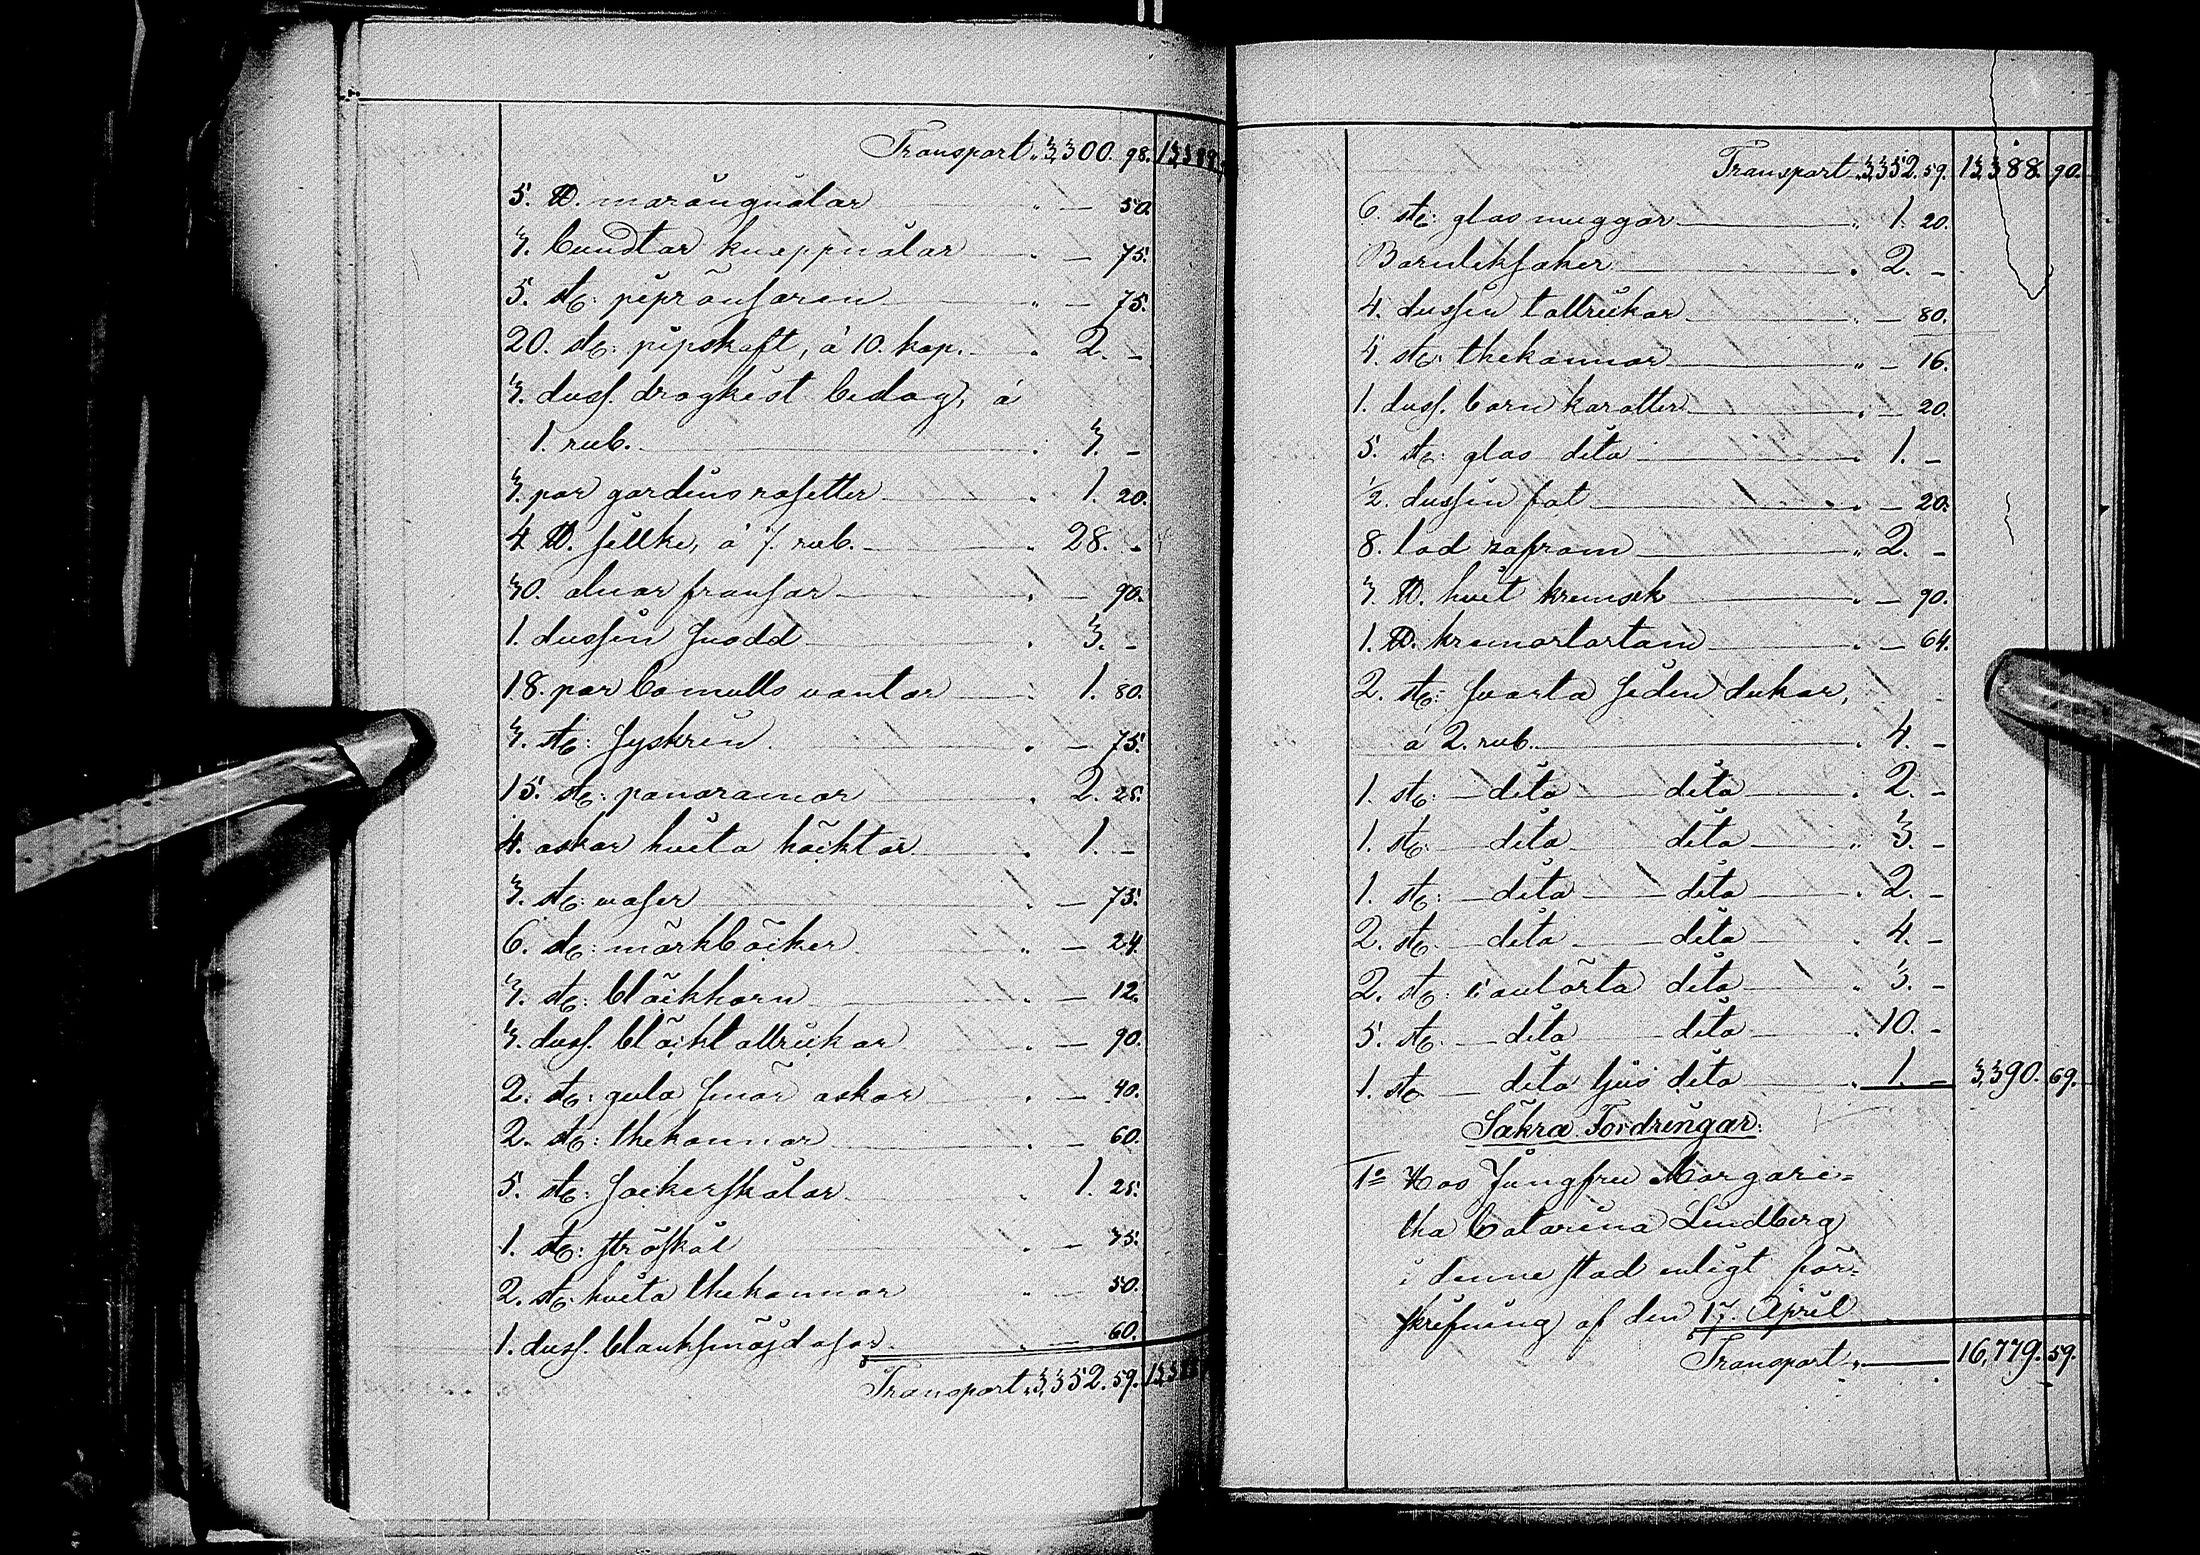 Transport „ 3,300. 98. 13,389.
5. ℔. marängnålar „ — 50.
3. bundtar knappnålar „ — 75.
5. st: piprönsaren „ — 75.
20. st: pipskaft, á 10. kop. „ 2. —
3. duss. dragkist beslag, á
1. rub. „ 3. —
3. par gardins rosetter „ 1. 20.
4 ℔. sillke, á 7. rub. „ 28. —
30. alnar fransar „ — 90.
1. dussin snodd „ 3. —
18. par bomulls vantar „ 1. 80.
3. st: syskrin „ — 75.
15. st: panoramor „ 2. 25.
4. askar hvita häcktor „ 1. —
3. st: vaser „ — 75.
6. st: märkböcker „ — 24.
3. st: bläckhorn „ — 12.
3. duss. bläcktallrickar „ — 90.
2. st: gula smör askar „ — 40.
2. st: thekannor „ — 60.
5. st: sockerskålar „ 1. 25.
1. st: ströskål „ — 35.
2. st: hvita thekannor „ — 50.
1. duss. blanksmöjdosor „ — 60.
Transport „ 3,352. 59. 13,38
Transport „ 3,352. 59. 13,388. 90.
6. st: glas muggar „ 1. 20.
Barnleksaker „ 2. —
4. dussin tallrikar „ — 80.
4. st: thekannor „ — 16.
1. duss. barn karotter „ — 20.
5. st: glas dito „ 1. —
1/2. dussin fat „ — 20.
8. lod zafram „ 2. —
3. ℔. hvit kremsek „ — 90.
1. ℔. kremortartam „ — 64.
2. st: svarta siden dukar,
á 2. rub. „ 4. —
1. st: — dito — dito „ 2. —
1. st: — dito — dito „ 3. —
1. st: — dito — dito „ 2. —
2. st: — dito — dito „ 4. —
2. st: coulörta dito „ 3. —
5. st: — dito — dito „ 10. —
1. st: — dito ljus dito „ 1. — 3,390. 69.
Säkra Fordringar.
1o Hos Jungfru Margare=
tha Catarina Lindberg
i denne stad enligt för=
skrifning af den 17. April
Transport „ — 16,779. 59.